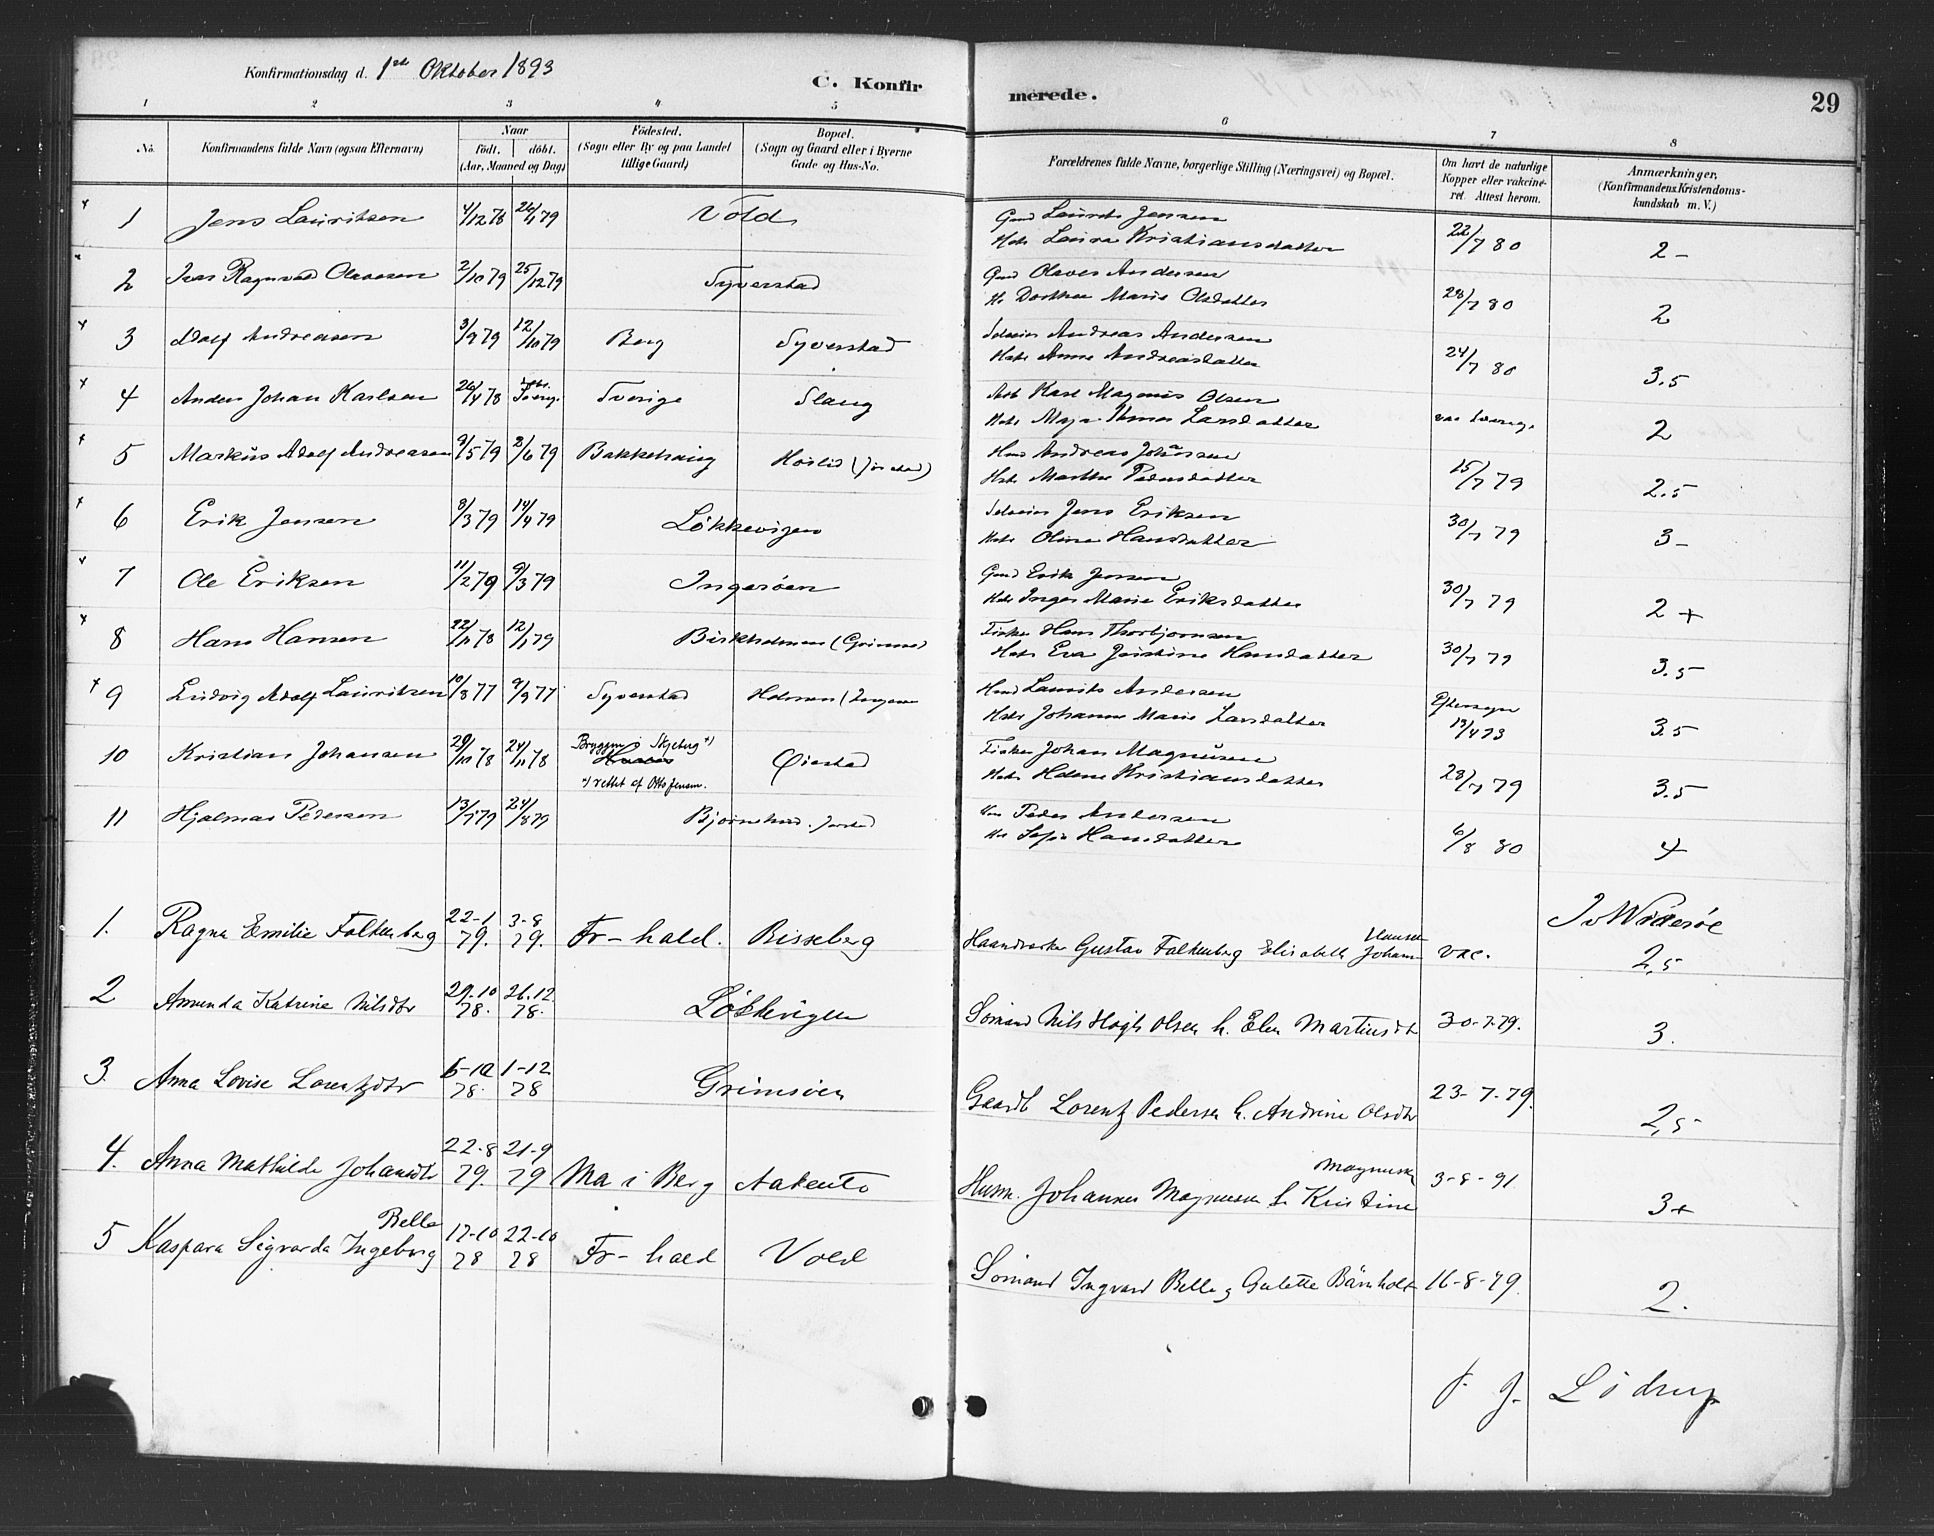 Konfirmationsdag d. 1ste Oktober 1893
C. Konfir
merede.
29
1 2 3 4 5 6 7 8
No.
Konfirmandens fulde Navn (ogsaa Efternavn)
Naar
født. døbt.
(Aar, Maaned og Dag)
Fødested.
(Sogn eller By og paa Landet
tillige Gaard)
Bopæl.
(Sogn og Gaard eller i Byerne
Gade og Hus-No.
Forældrenes fulde Navne, borgerlige Stilling (Næringsvei) og Bopæl.
Om havt de naturlige
Kopper eller vakcine-
ret. Attest herom.
Anmærkninger,
(Konfirmandens Kristendoms-
kundskab m. V.)
1 Jens Lauritsen 4/12 78 26/1 79 Vold Gmd Laurits Jensen
Hst Laura Kristiansdatter 22/7 80 2 -
2 Ivar Ragnvald Olavesen 2/10 79 25/12 79 Syverstad Gmd Olaves Andersen
H. Dorthea Marie Olsdatter 28/7 80 2
3 Adolf Andreasen 3/9 79 12/10 79 Berg Syverstad Selveier Andreas Andersen
Hst Anne Andreasdatter 24/7 80 3.5
4 Anders Johan Karlsen 26/4 78 Sverige Slang Arb Karl Magnus Olsen
Hst Maja Larsdatter vac Sverige 2
5 Markus Adolf Andreasen 9/5 79 2/6 79 Bakkehaug Høilid (Jorstad) Hmd Andreas Johansen
Hst Marthe Pedersdatter 15/7 79 2.5
6 Erik Jensen 8/3 79 14/4 79 Løkkevigen Selveier Jens Eriksen
Hst Oline Hansdatter 30/7 79 3 -
7 Ole Eriksen 11/2 79 9/3 79 Ingerøen Gmd Erik Jensen
Hst Inger Marie Eriksdatter 30/7 79 2 +
8 Hans Hansen 22/11 78 12/1 79 Birkholmen (Grimsø) Fisker Hans Thorbjørnsen
Hst Eva Justine Hansdatter 30/7 79 3.5
9 Ludvig Adolf Lauritsen 10/8 77 9/9 77 Syverstad Holmen Hmd Laurits Andersen
Hst Johanne Marie Larsdatter 13/4 93 3.5
10 Kristian Johansen 29/10 78 24/11 78 Bryggen i Skjeberg +) Øiestad Fisker Johan Magnusen
+) rettet af Otto Jensen. Hst Helene Kristiansdatter 28/7 79 3.5
11 Hjalmar Pedersen 13/7 79 24/8 79 Jorstad Peder Andersen
Hst Sofie Hansdatter 6/8 80 4
Jv Widerøe
1. Ragna Emilie Falkenberg 22-1 79. 3-8 79. Fr-hald. Risseberg Haandverker Gustav Falkenberg Elisabeth Johans Hansen vac. 2,5
2 Amunda Katrine Nilsdtr 29-10 78. 26-12 78. Løkkevigen Sømand Nils Olsen h. Elen Martinsdt 30-7-79. 3.
3. Anna Lovise Lorentzdtr 6-10 78. 1-12 78 Grimsøen Gaardb Lorentz Pedersen h. Andrine Olsdtr 23-7-79. 2,5
4. Anna Mathilde Johansdtr 22-8 79. 21-9 79 Ma i Berg Aakento Husm. Johannes Magnusen h Kristine Magnusen 3-8-91. 3+
5 Kaspara Sigvarda Ingeborg Belle 17-10 78 22-10 78 Fr-hald Vold Sømand Ingvard Belle og Gulette Bärnholt 16-8-79. 2.
J. J. Lødrup